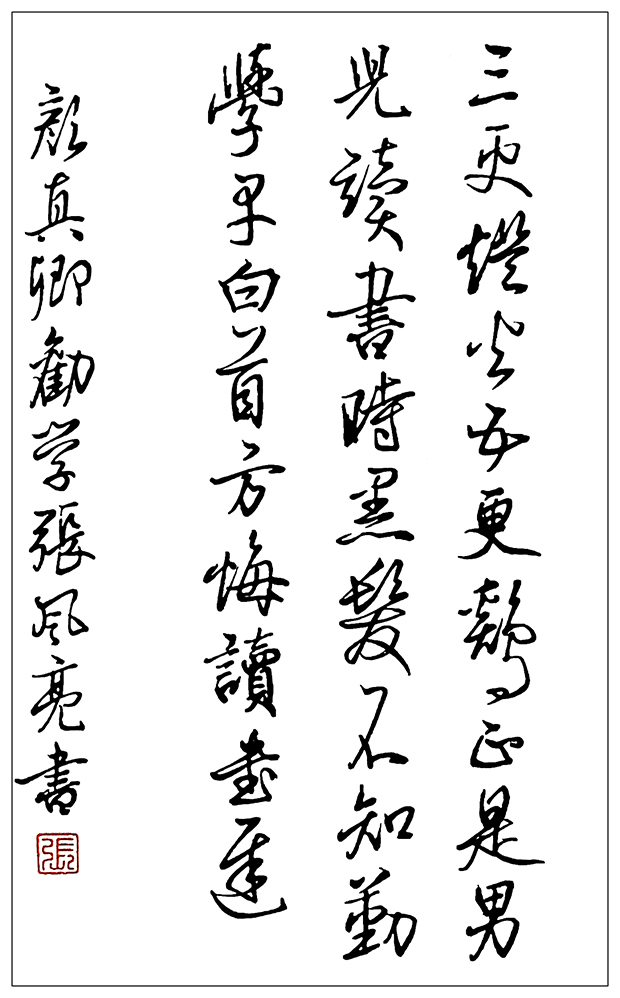 三更燈火五更鷄正是男
兒讀書時黑髮不知勤
學早白首方悔讀書遲
顏真卿勸学張风亮書
張